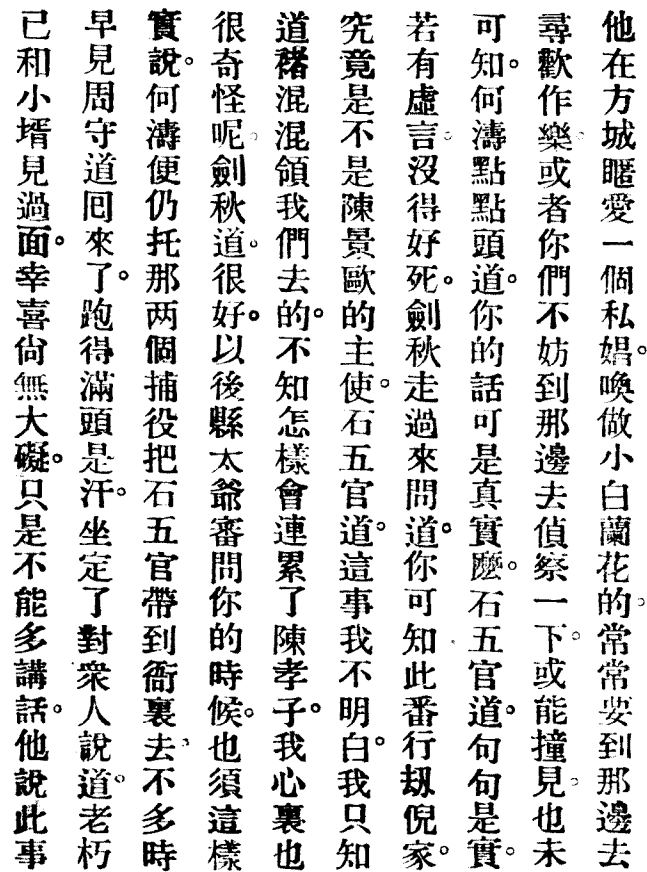 他在方城暱愛一個私娼。喚做小白蘭花的。常常要到那邊去
尋歡作樂。或者你們不妨到那邊去偵察一下。或能撞見。也未
可知。何濤點點頭道。你的話可是真實麽。石五官道。句句是實。
若有虛言。沒得好死。劍秋走過來問道。你可知此番行刼倪家。
究竟是不是陳景歐的主使。石五官道。這事我不明白。我只知
道褚混混領我們去的。不知怎樣會連累了陳孝子。我心裏也
很奇怪呢。劍秋道。很好。以後縣太爺審問你的時候。也須這樣
實說。何濤便仍托那两個捕役把石五官帶到衙裏去。不多時
早見周守道囘來了。跑得滿頭是汗。坐定了對衆人說道。老朽
已和小壻見過面。幸喜尙無大礙。只是不能多講話。他說此事